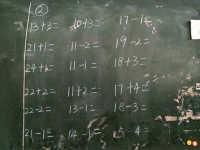 ②
13+3= 10+3= 17-1=
21+1= 11-2= 19-2=
24+2= 11-1= 18+3=
22+2= 11+2= 17+4=
22-2= 13-1= 18-3=
21-1= 14-1= 5-4=